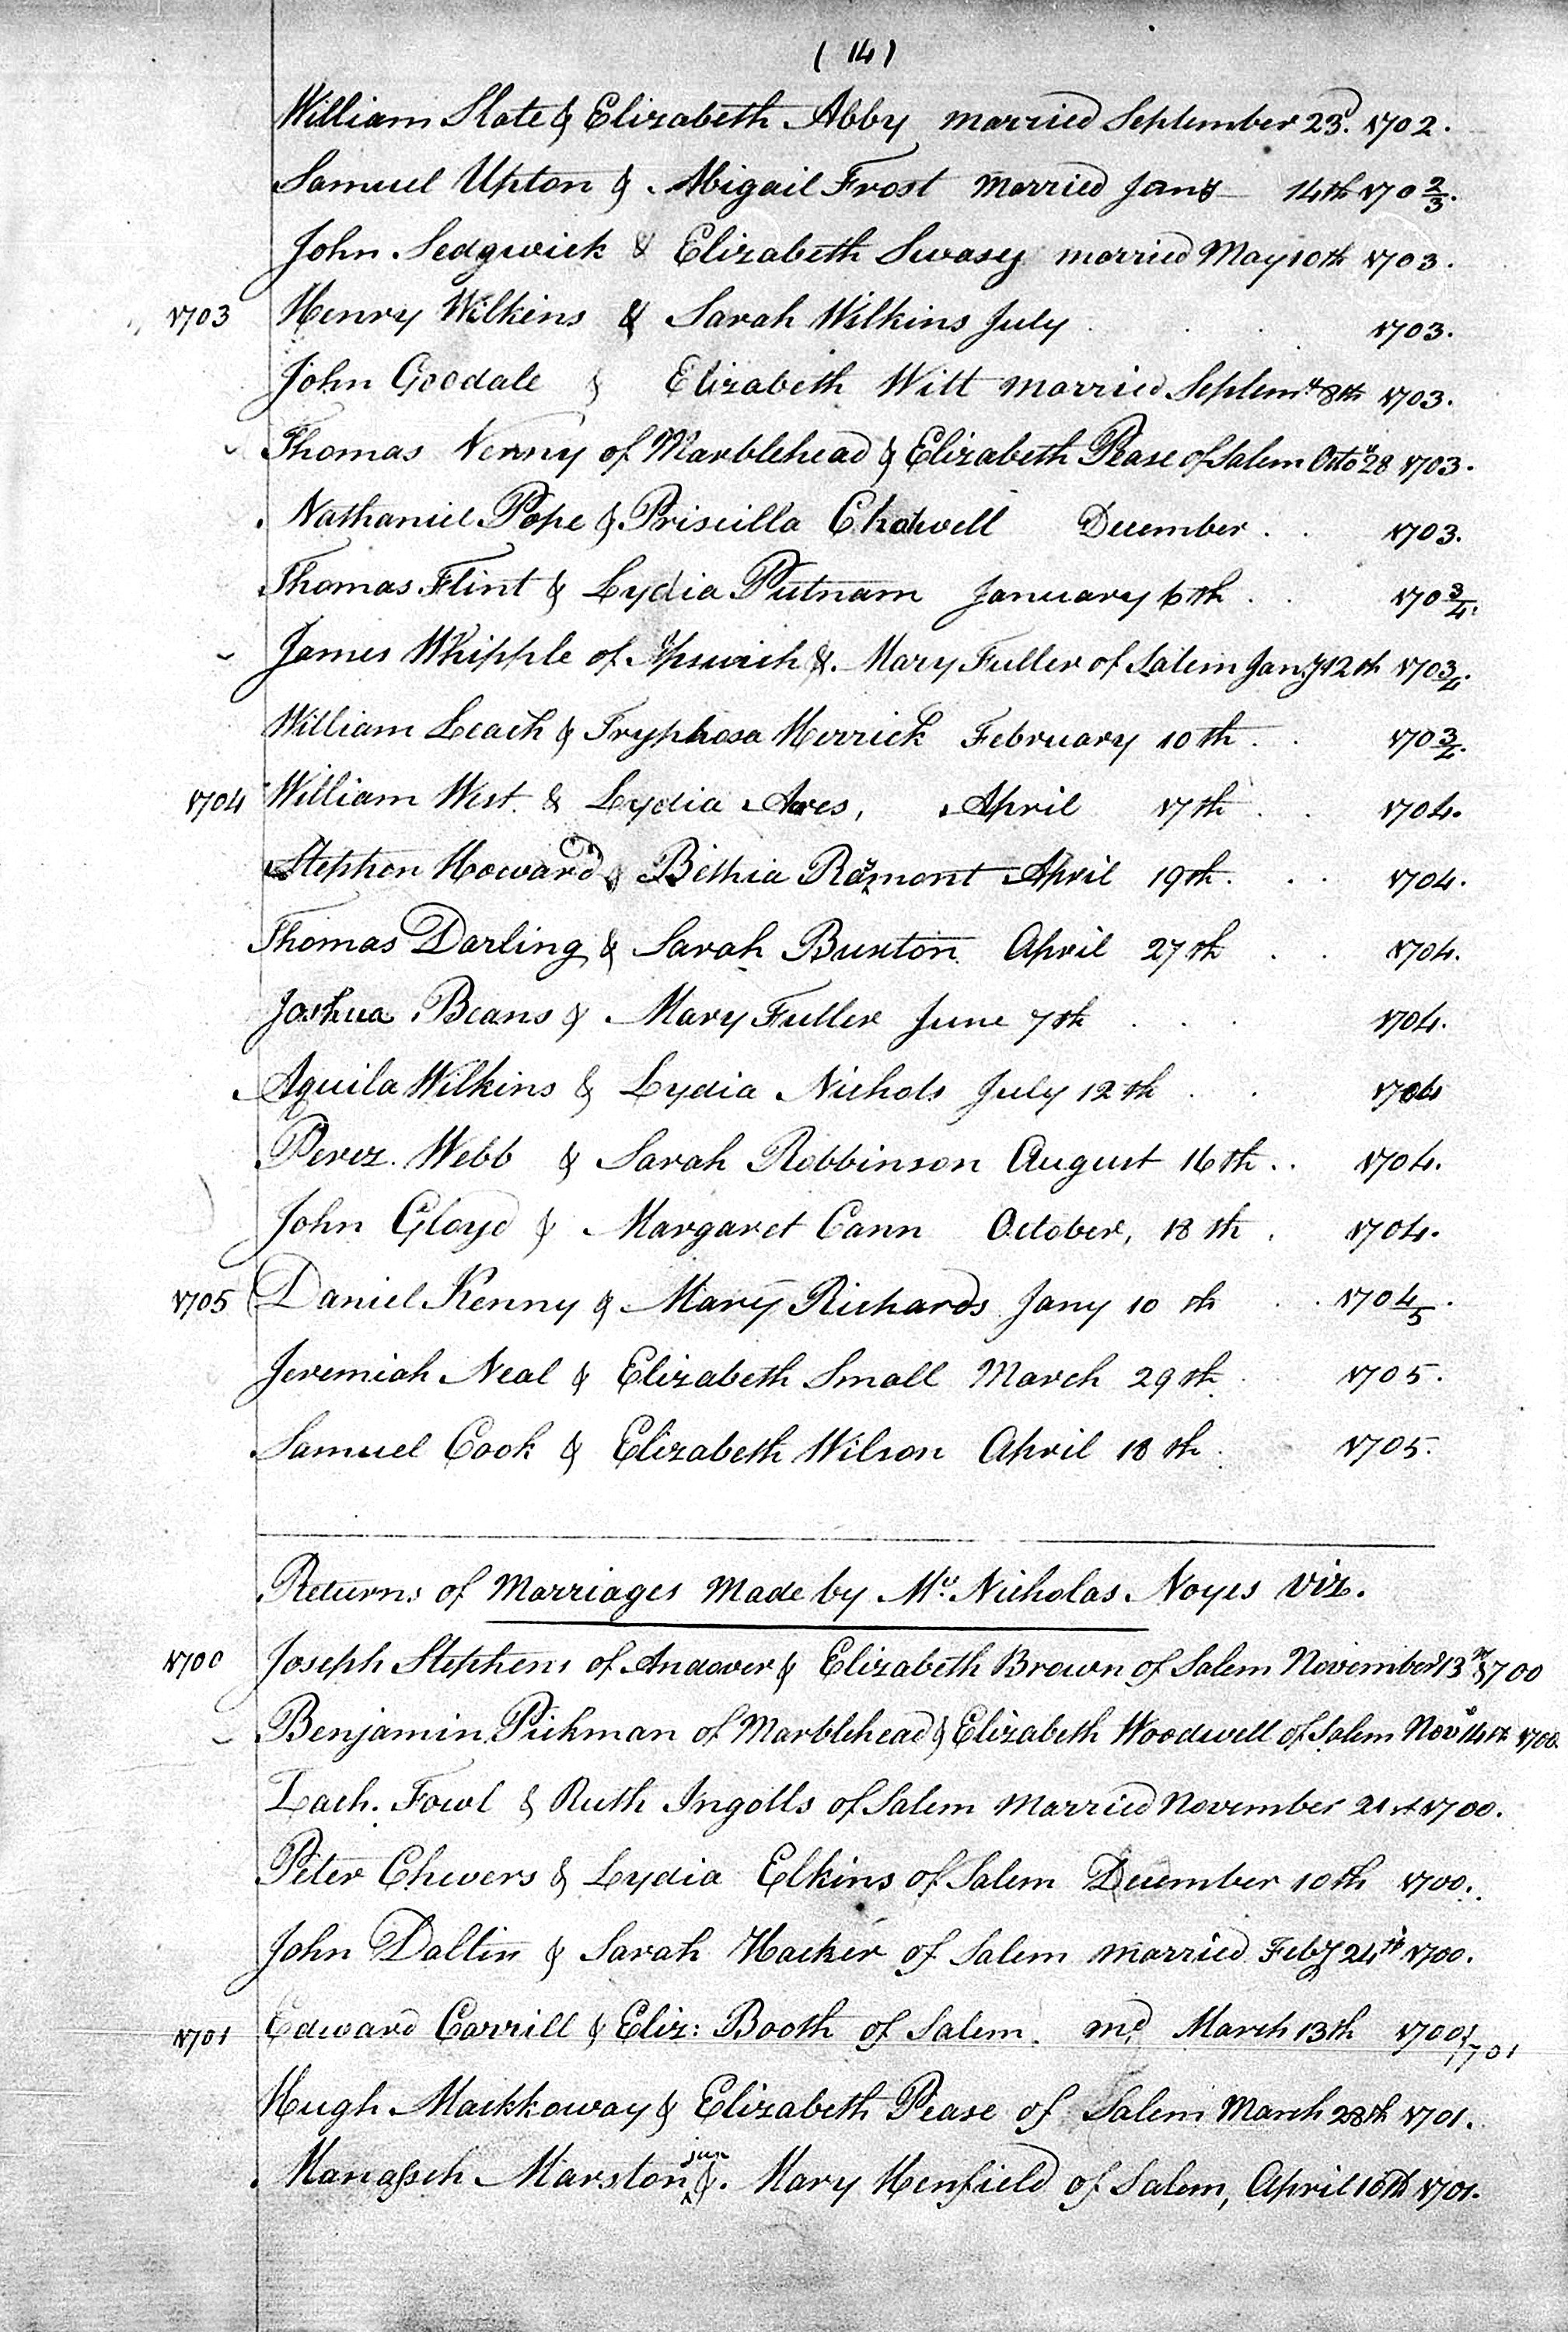 ( 14 )
William Slate & Elizabeth Abby married September 23d. 1702.
Samuel Upton & Abigail Frost married Jany 14th 170 2/3.
John Sedgwick & Elizabeth Swasey married May 10th 1703.
1703 Henry Wilkins & Sarah Wilkins July . . . 1703.
John Goodale & Elizabeth Witt married Septemr 8th 1703.
Thomas Nenny of Marblehead & Elizabeth Pease of Salem Octor 28 1703.
Nathaniel Pope & Priscilla Chatwell December . . 1703.
Thomas Flint & Lydia Putnam January 6th . . 170 3/4.
James Whipple of Ipswich & Mary Fuller of Salem Jany 12th 170 3/4.
William Leach & Tryphosa Herrick February 10th . . 170 3/4.
1704 William West & Lydia Ares, April 17th . . 1704.
Stephen Howard & Bethia Raymont April 19th . . . 1704.
Thomas Darling & Sarah Buxton April 27th . . 1704.
Joshua Beans & Mary Fuller June 7th . . . 1704.
Aquila Wilkins & Lydia Nichols July 12th . . 1704
Perez Webb & Sarah Robbinson August 16th . . 1704.
John Gloyd & Margaret Cann October, 18th . 1704.
1705 Daniel Kenny & Mary Richards Jany 10th . . 170 4/5.
Jeremiah Neal & Elizabeth Small March 29th . 1705.
Samuel Cook & Elizabeth Wilson April 18th . 1705.
Returns of Marriages Made by Mr. Nicholas Noyes viz.
1700 Joseph Stephens of Andover & Elizabeth Brown of Salem November 13th 1700
Benjamin Pickman of Marblehead & Elizabeth Woodwell of Salem Novr 14th 1700.
Zach. Fowl & Ruth Ingolls of Salem married November 21st 1700.
Peter Chevers & Lydia Elkins of Salem December 10th 1700.
John Daltin & Sarah Hacker of Salem married Feby 24th 1700.
1701 Edward Carrill & Eliz: Booth of Salem. md March 13th 1700/1701
Hugh Mackkoway & Elizabeth Pease of Salem March 28th 1701.
Manasseh Marston jun & Mary Henfield of Salem, April 10th 1701.